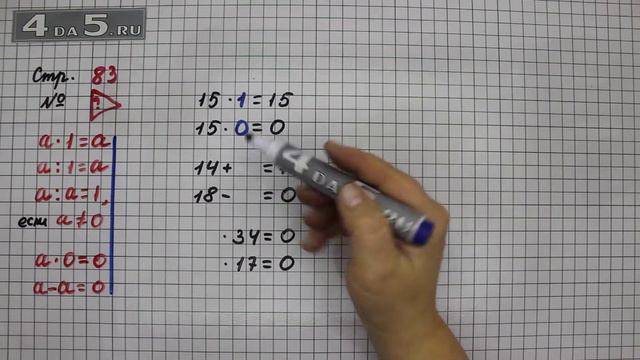 4 DA 5.RU
Стр. 83
№ ?
a · 1 = a
a : 1 = a
a : a = 1,
если a ≠ 0
a · 0 = 0
a - a = 0
15 · 1 = 15
15 · 0 = 0
14 + =
18 - = 0
· 34 = 0
· 17 = 0
4 DA